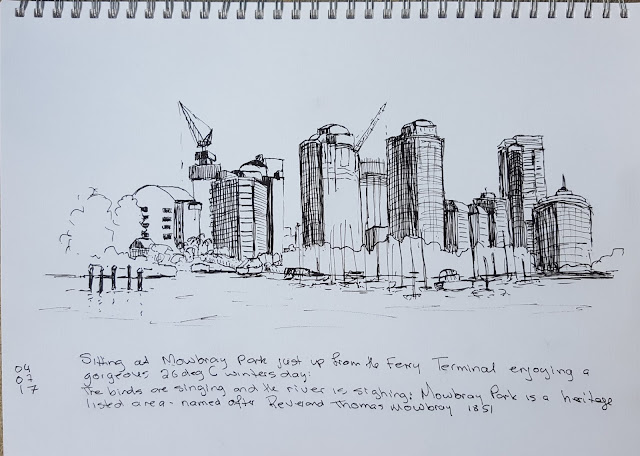 Sitting at Mowbray Park just up from the Ferry Terminal enjoying a
gorgeous 26 deg C winters day.
The birds are singing and the river is sighing; Mowbray Park is a heritage
listed area - named after Reverand Thomas Mowbray 1851
04
07
17